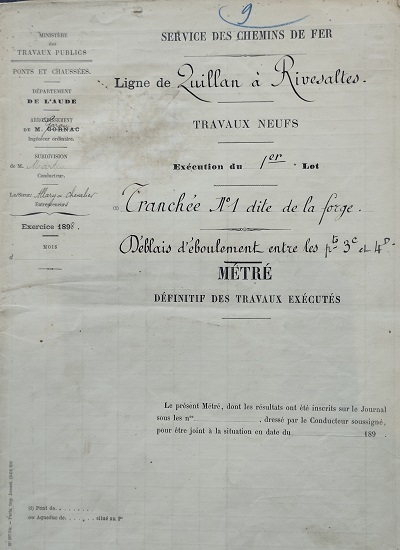 9
MINISTÈRE
DES
TRAVAUX PUBLICS
PONTS ET CHAUSSÉES.
DÉPARTEMENT
DE L'AUDE
ARRONDISSEMENT
DE M. GORNAC
Ingénieur ordinaire.
SUBDIVISION
de M.
Conducteur.
Allary-Chevalier
Entrepreneurs
Exercice 1898.
MOIS
d
SERVICE DES CHEMINS DE FER
Ligne de Quillan à Rivesaltes.
TRAVAUX NEUFS
Exécution du 1er Lot
(1) Tranchée N°1 dite de la forge.
Déblais d'éboulement entre les pts 3c et 4D.
MÉTRÉ
DÉFINITIF DES TRAVAUX EXÉCUTÉS
Le présent Métré, dont les résultats ont été inscrits sur le Journal
sous les nos , dressé par le Conducteur soussigné,
pour être joint à la situation en date du 189 .
(1) Pont de
ou Aqueduc de situé au P